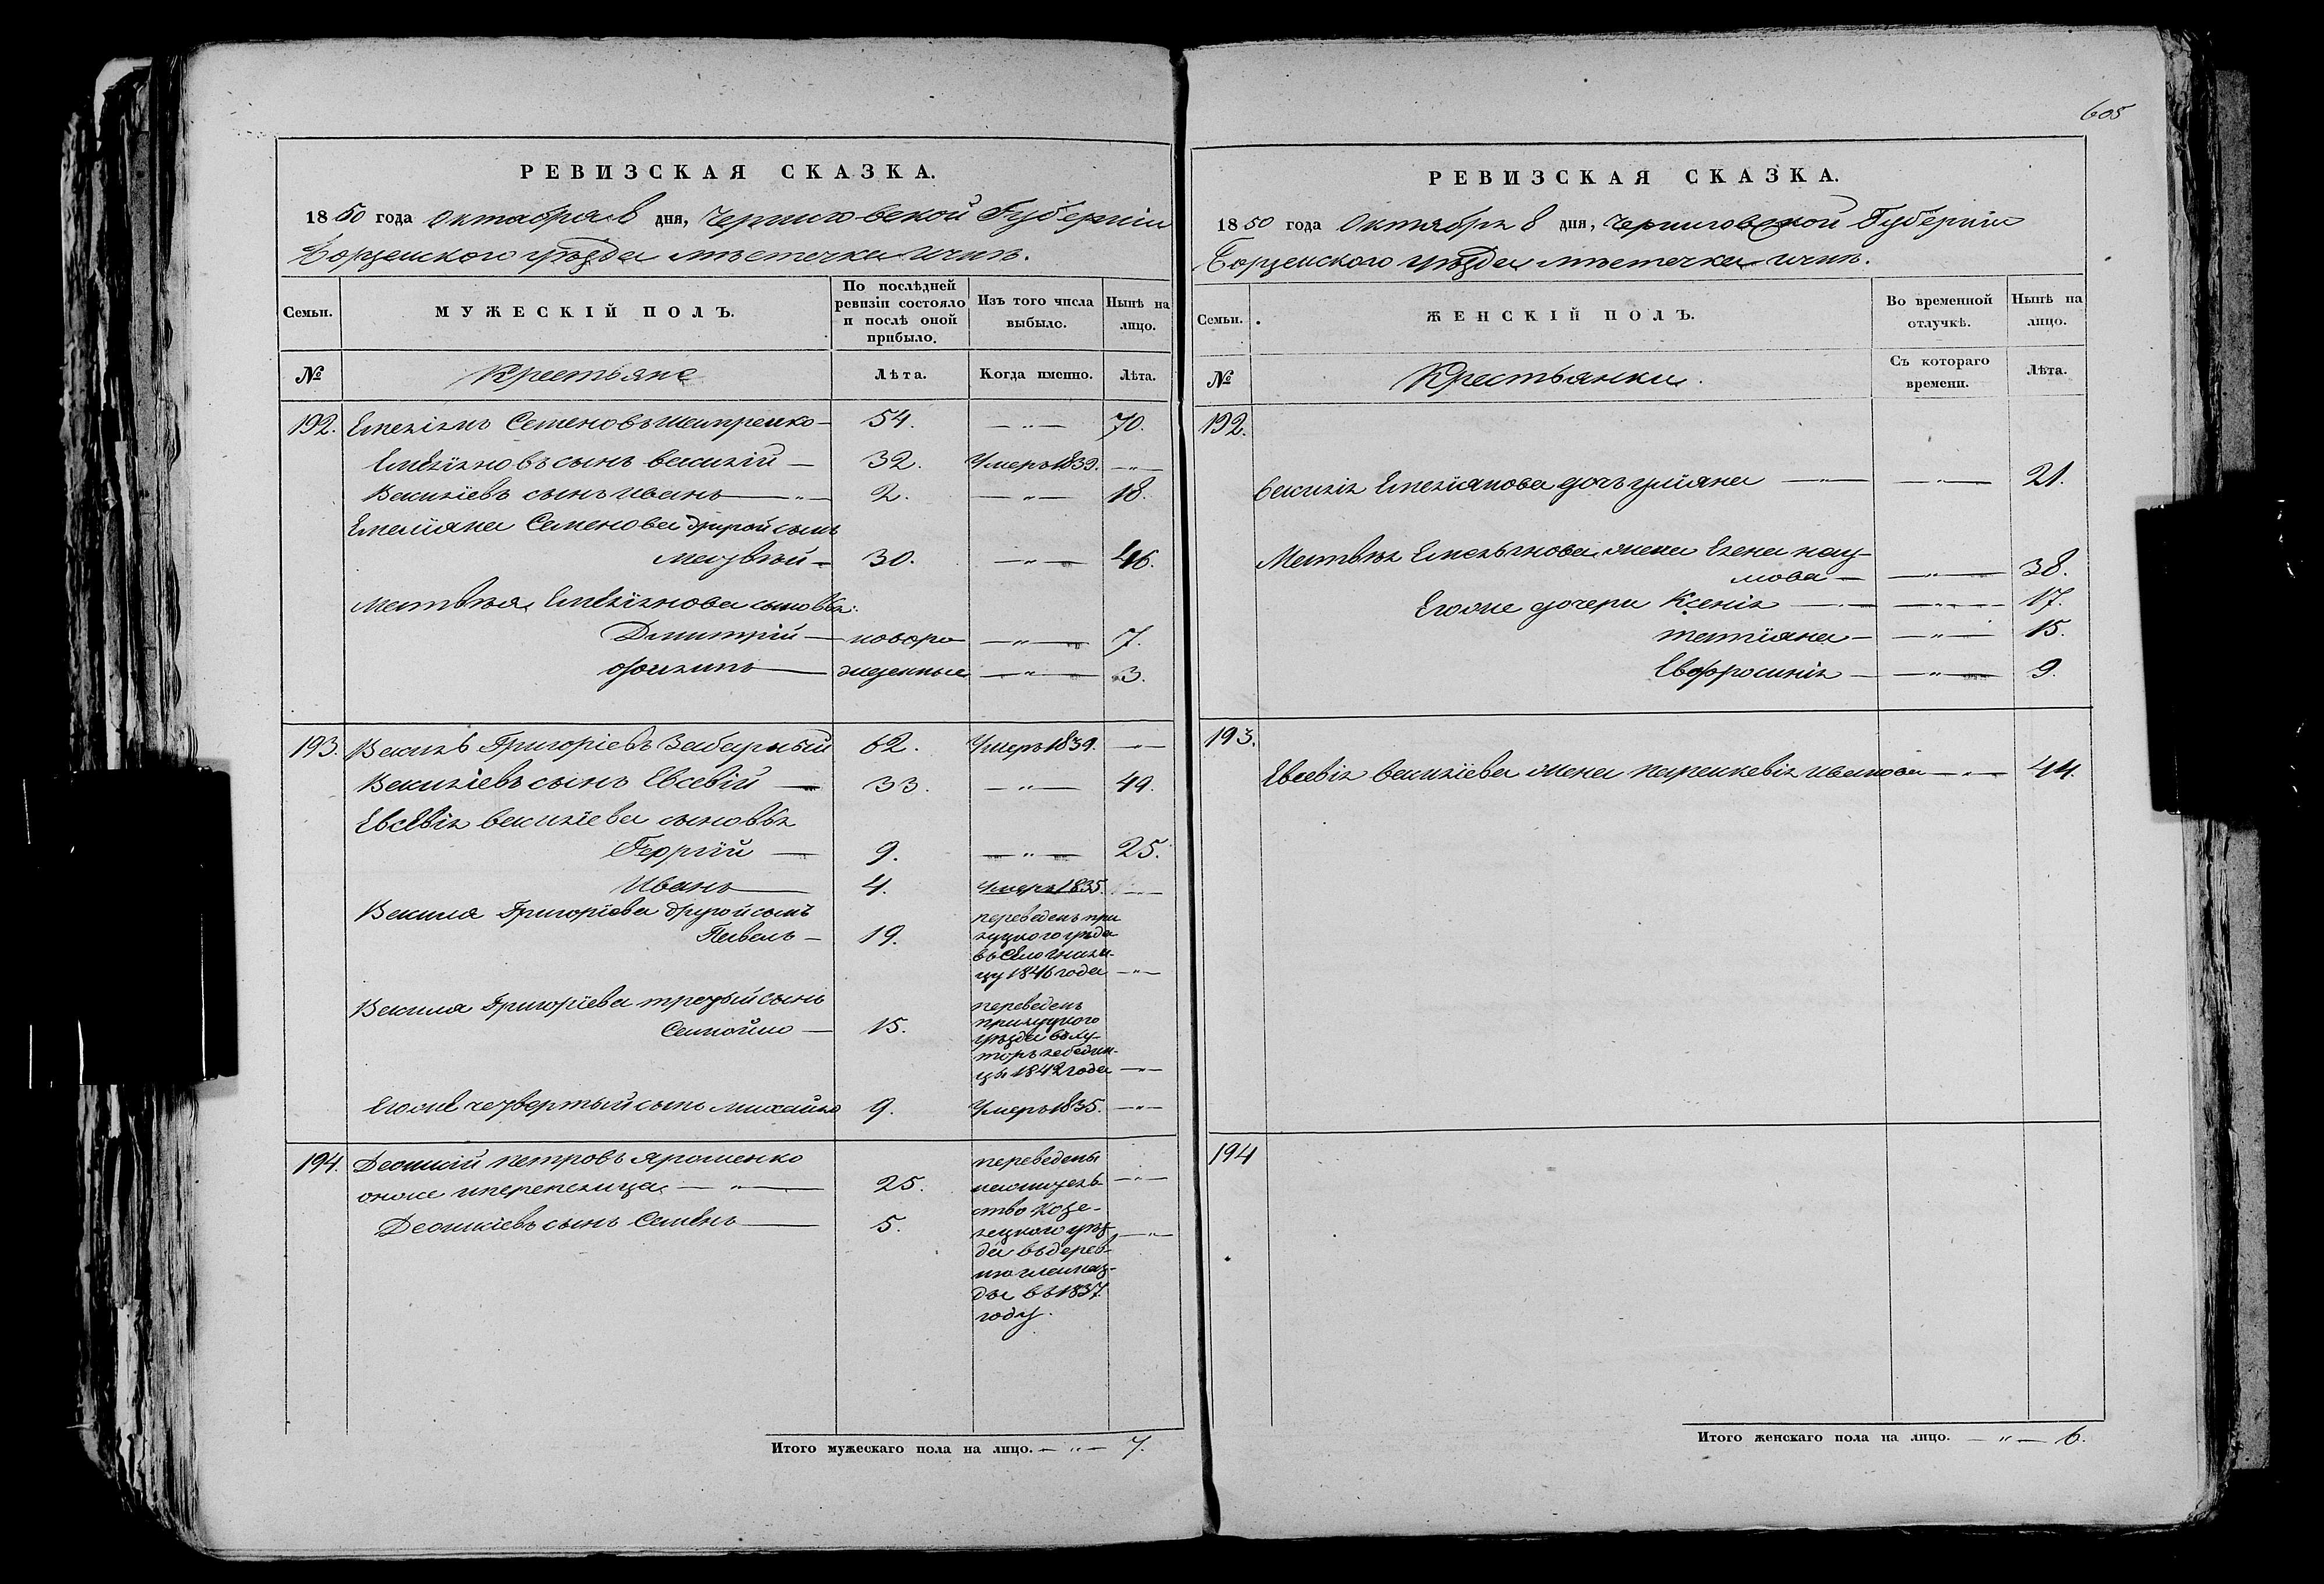 РЕВИЗСКАЯ СКАЗКА.
1850 года Октября 8 дня, Черниговской Губерніи
Борзенского уѣзда мѣстечка Ични.
Семьи. МУЖЕСКІЙ ПОЛЪ. По послѣдней ревизіи состояло и послѣ оной прибыло. Изъ того числа выбыло. Нынѣ на лицо.
№ Крестьяне Лѣта. Когда именно. Лѣта.
192. Емеліянъ Семеновъ 54. — „ — 70.
Емеліяновъ сынъ Василій — 32. Умеръ 1839. — „ —
Василіевъ сынъ Иванъ — „ — 2. — „ — 18.
Емеліяна Семенова другой сынъ
Матвѣй — 30. — „ — 46.
Матвѣя Емеліянова сыновья:
Дмитрій — новоро — „ — 7.
— жденные — „ — 3.
193. Василь Григоріевъ Забарный 62. Умеръ 1839. — „ —
Василіевъ сынъ Евсевій — 33. — „ — 49.
Евсевія Василіева сыновья
Георгій — 9. — „ — 25.
Иванъ — 4. Умеръ 1835. — „ —
Василя Григоріева другой сынъ переведенъ при
Павелъ — 19. луцкого уѣзда
въ село
цу 1846 года — „ —
Василя Григоріева третый сынъ переведенъ
Самойло — 15. прилуцкого
уѣзда въ ху-
торъ лебедин-
цы 1842 года — „ —
Егоже четвертый сынъ Михайло 9. Умеръ 1835. — „ —
194. Петровъ Ярошенко переведены
онъже иперепелица — „ — 25. — „ —
ство Козе-
сынъ Семенъ — 5. лецкого уѣз- — „ —
да въ дерев-
ню
въ 1837
году.
Итого мужескаго пола на лицо. — „ — 7.
605
РЕВИЗСКАЯ СКАЗКА.
1850 года Октября 8 дня, Черниговской Губерніи
Борзенского уѣзда мѣстечка Ични.
Семьи. ЖЕНСКІЙ ПОЛЪ. Во временной отлучкѣ. Нынѣ на лицо.
№ Крестьянки. Съ котораго времени. Лѣта.
192.
Василія Емеліянова дочь уліяна — — „ — 21.
Матвѣя Емельянова жена Елена нау-
мова — — „ — 38.
Егоже дочери Ксенія — — „ — 17.
татіяна — — „ — 15.
Евфросинія — — „ — 9.
193.
Евсевія Василіева жена параскевія иванова — „ — 44.
194
Итого женскаго пола на лицо. — „ — 6.